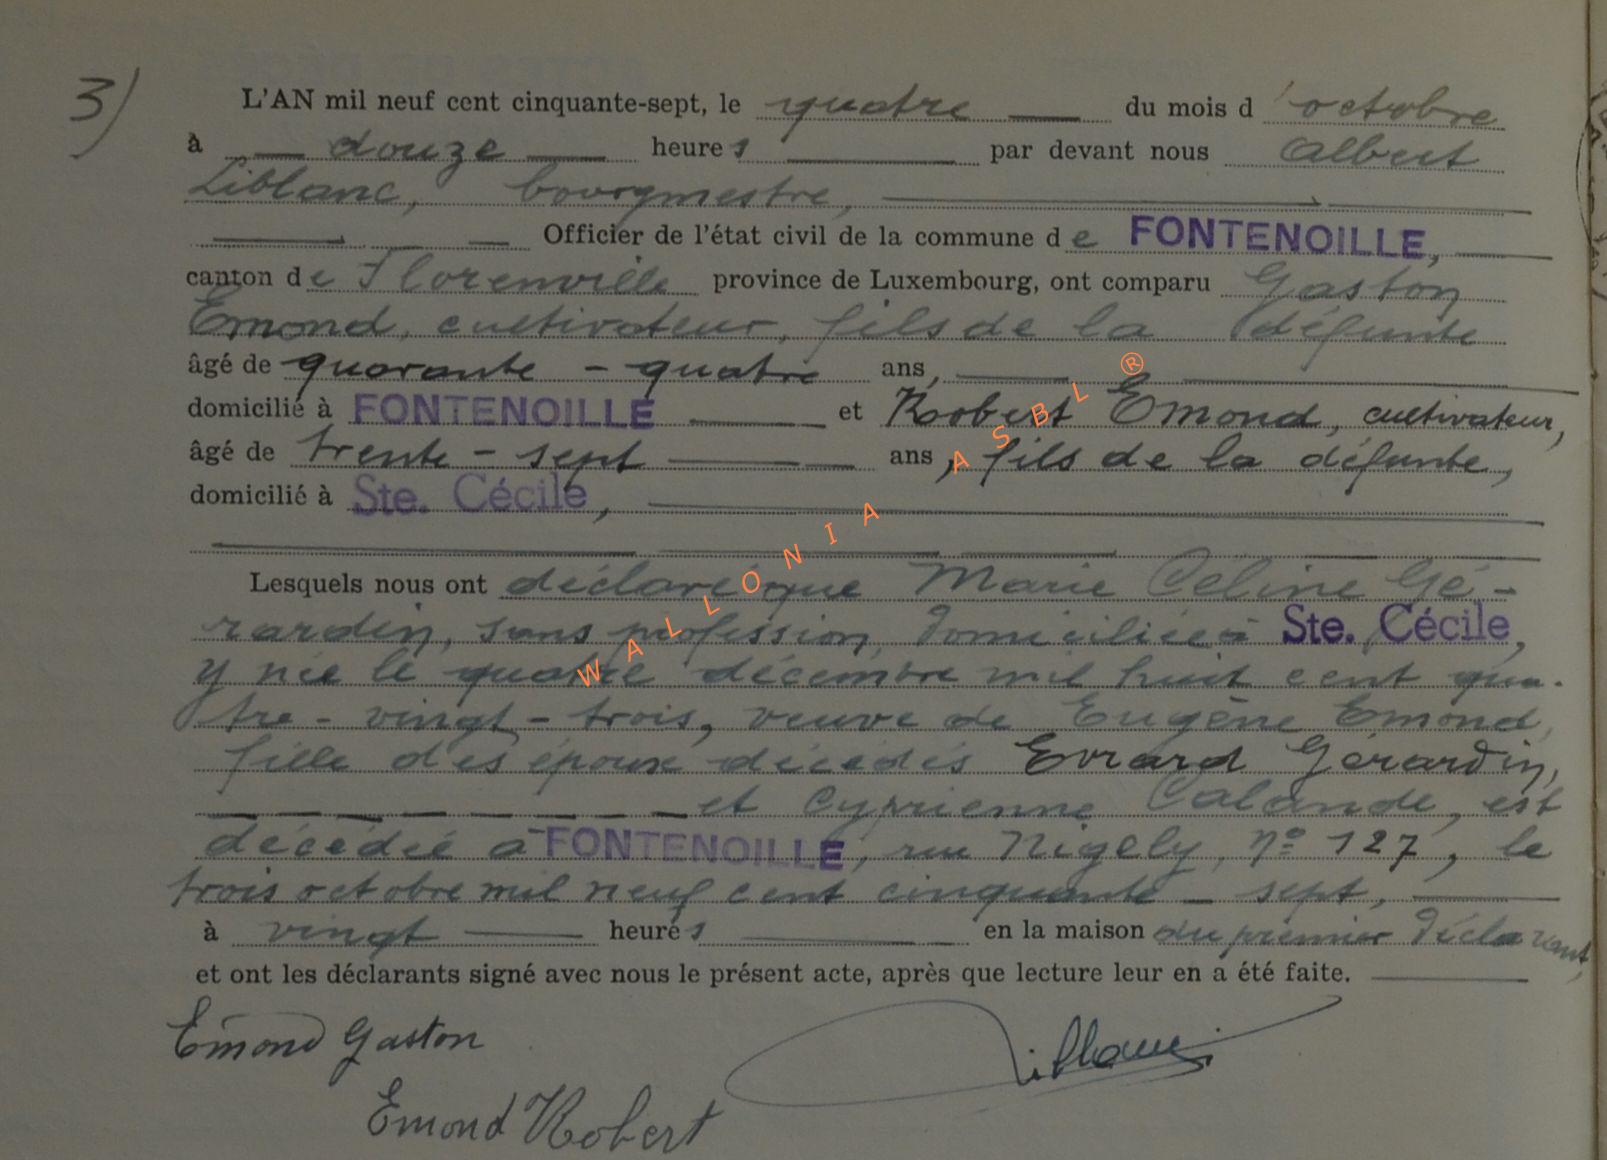 3)
L'AN mil neuf cent cinquante-sept, le quatre du mois d'octobre
à douze heures par devant nous Albert
Liblanc, bourgmestre,
Officier de l'état civil de la commune de FONTENOILLE,
canton de Florenville province de Luxembourg, ont comparu Gaston
Emond, cultivateur, fils de la défunte
âgé de quarante-quatre ans,
domicilié à FONTENOILLE et Robert Emond, cultivateur,
âgé de trente-sept ans, fils de la défunte,
domicilié à Ste. Cécile,
Lesquels nous ont déclaré que Marie Céline Gé-
rardin, sans profession, domiciliée à Ste. Cécile,
y née le quatre décembre mil huit cent qua-
tre-vingt-trois, veuve de Eugène Emond,
fille des époux décédés Evrard Gérardin,
et Cyprienne Calande, est
décédée à FONTENOILLE, rue Nigely, n° 127, le
trois octobre mil neuf cent cinquante-sept,
à vingt heures en la maison du premier déclarant,
et ont les déclarants signé avec nous le présent acte, après que lecture leur en a été faite.
Emond Gaston
Emond Robert
WALLONIA ASBL ®